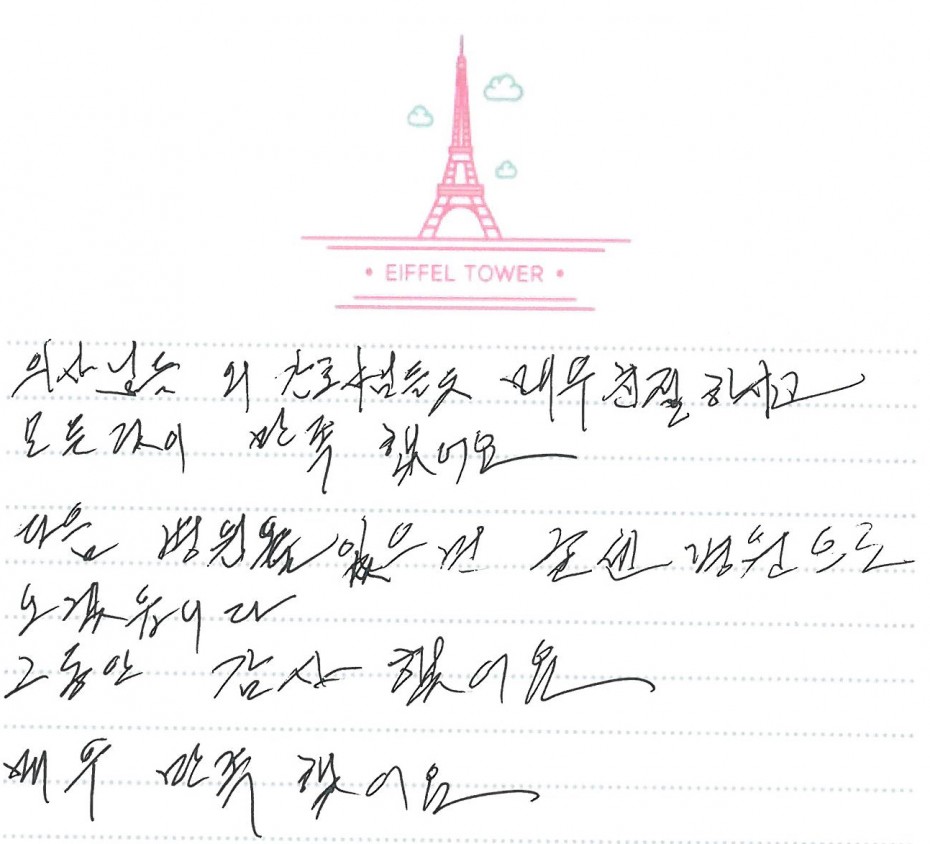 EIFFEL TOWER
의사님 외 간호사님들 매우 친절하시고
모든것이 만족 했어요
다음 병원 있으면 병원으로
오겠습니다
그동안 감사 했어요
매우 만족 했어요